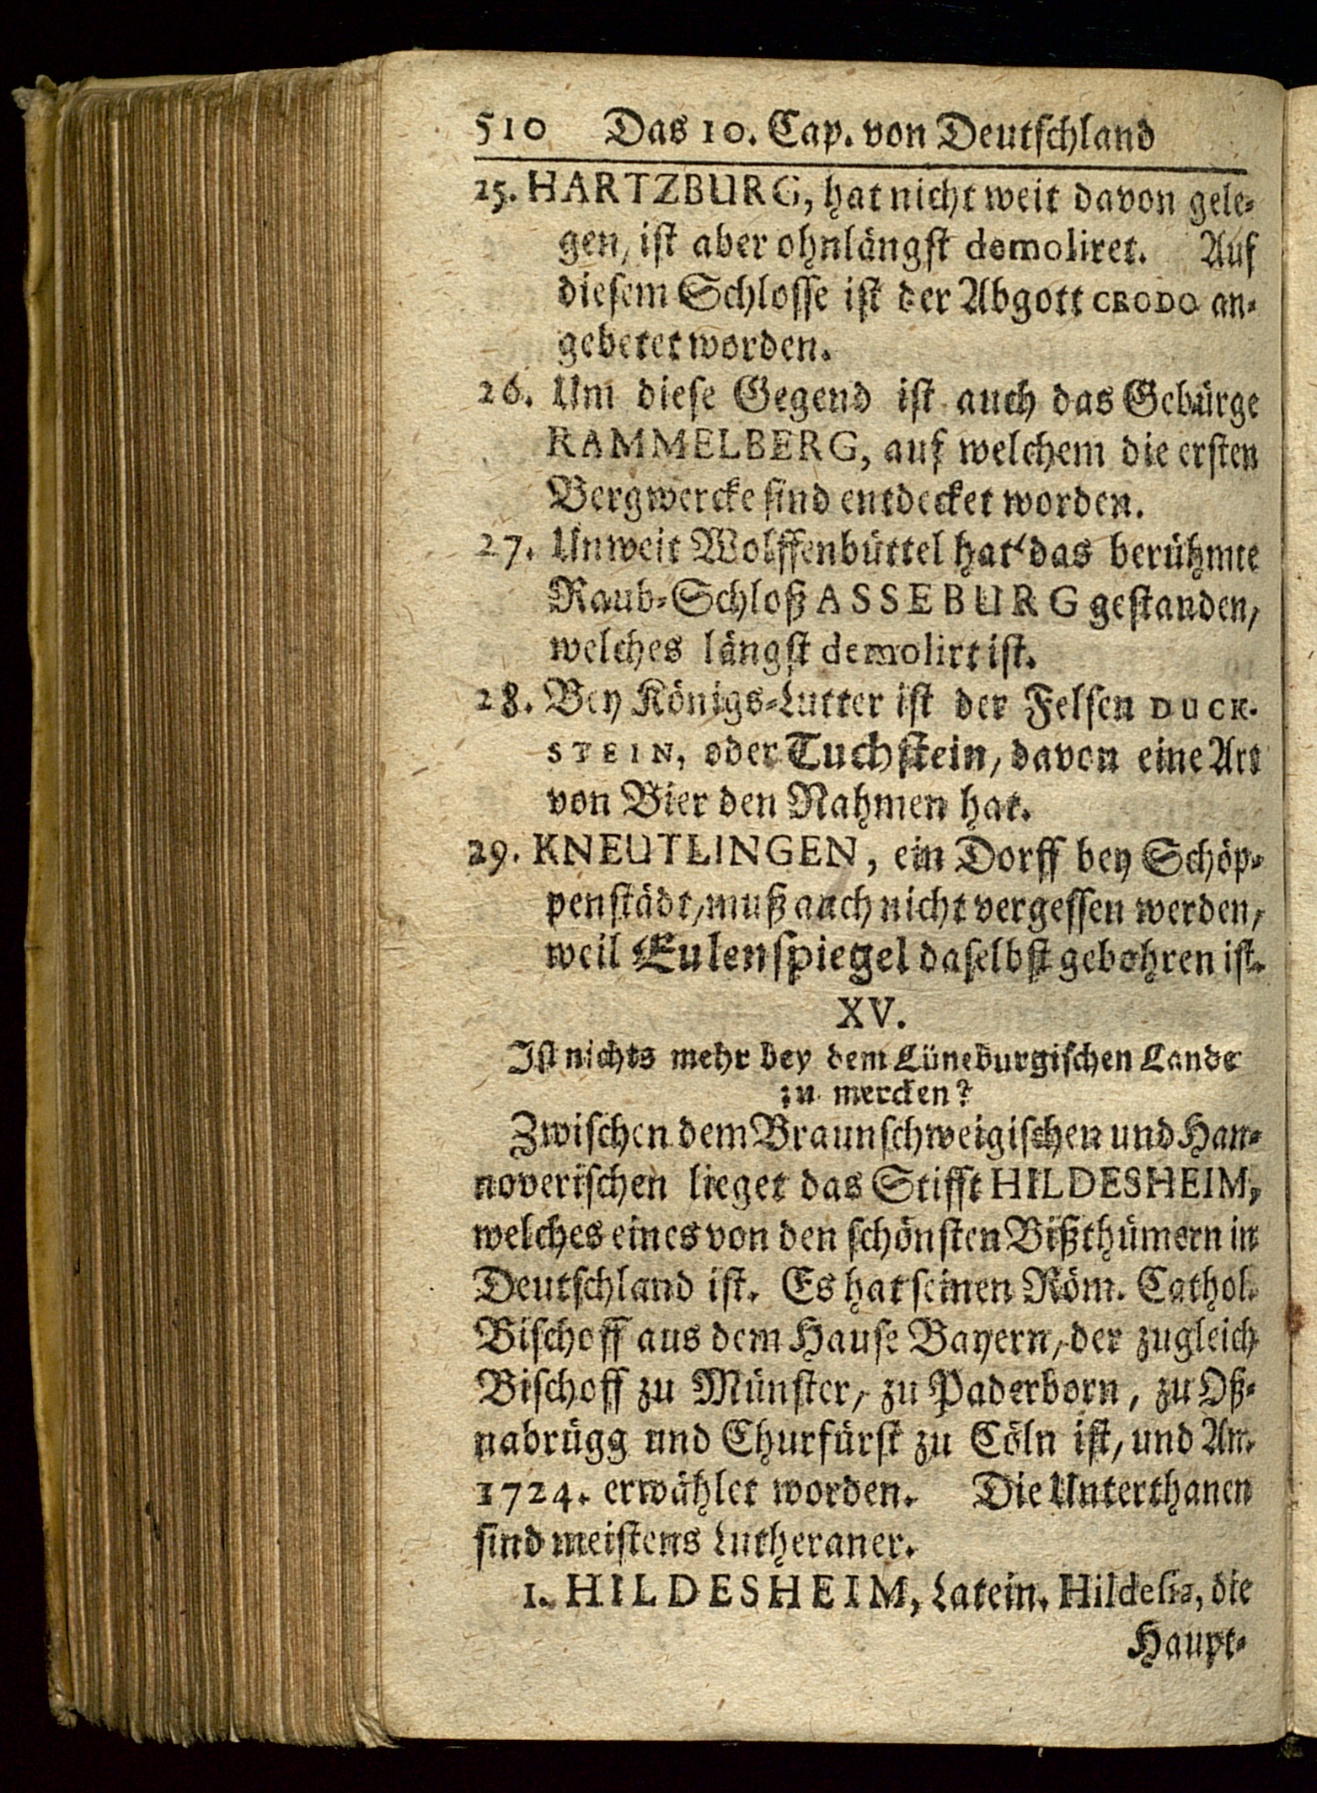 510 Das 10. Cap. von Deutschland
25. HARTZBURG, hat nicht weit davon gele-
gen, ist aber ohnlängst demoliret. Auf
diesem Schlosse ist der Abgott CRODO an-
gebetet worden.
26. Um diese Gegend ist auch das Gebürge
RAMMELBERG, auf welchem die ersten
Bergwercke sind entdecket worden.
27. Unweit Wolffenbüttel hat das berühmte
Raub-Schloß ASSEBURG gestanden,
welches längst demolirt ist.
28. Bey Königs-Lutter ist der Felsen DUCK-
STEIN, oder Tuchstein, davon eine Art
von Bier den Nahmen hat.
29. KNEUTLINGEN, ein Dorff bey Schöp-
penstädt, muß auch nicht vergessen werden,
weil Eulenspiegel daselbst gebohren ist.
XV.
Ist nichts mehr bey dem Lüneburgischen Lande
zu mercken?
Zwischen dem Braunschweigischen und Han-
noverischen lieget das Stifft HILDESHEIM,
welches eines von den schönsten Bißthümern in
Deutschland ist. Es hat seinen Röm. Cathol.
Bischoff aus dem Hause Bayern, der zugleich
Bischoff zu Münster, zu Paderborn, zu Oß-
nabrügg und Churfürst zu Cöln ist, und An.
1724. erwählet worden. Die Unterthanen
sind meistens Lutheraner.
1. HILDESHEIM, Latein. Hildesia, die
Haupt-